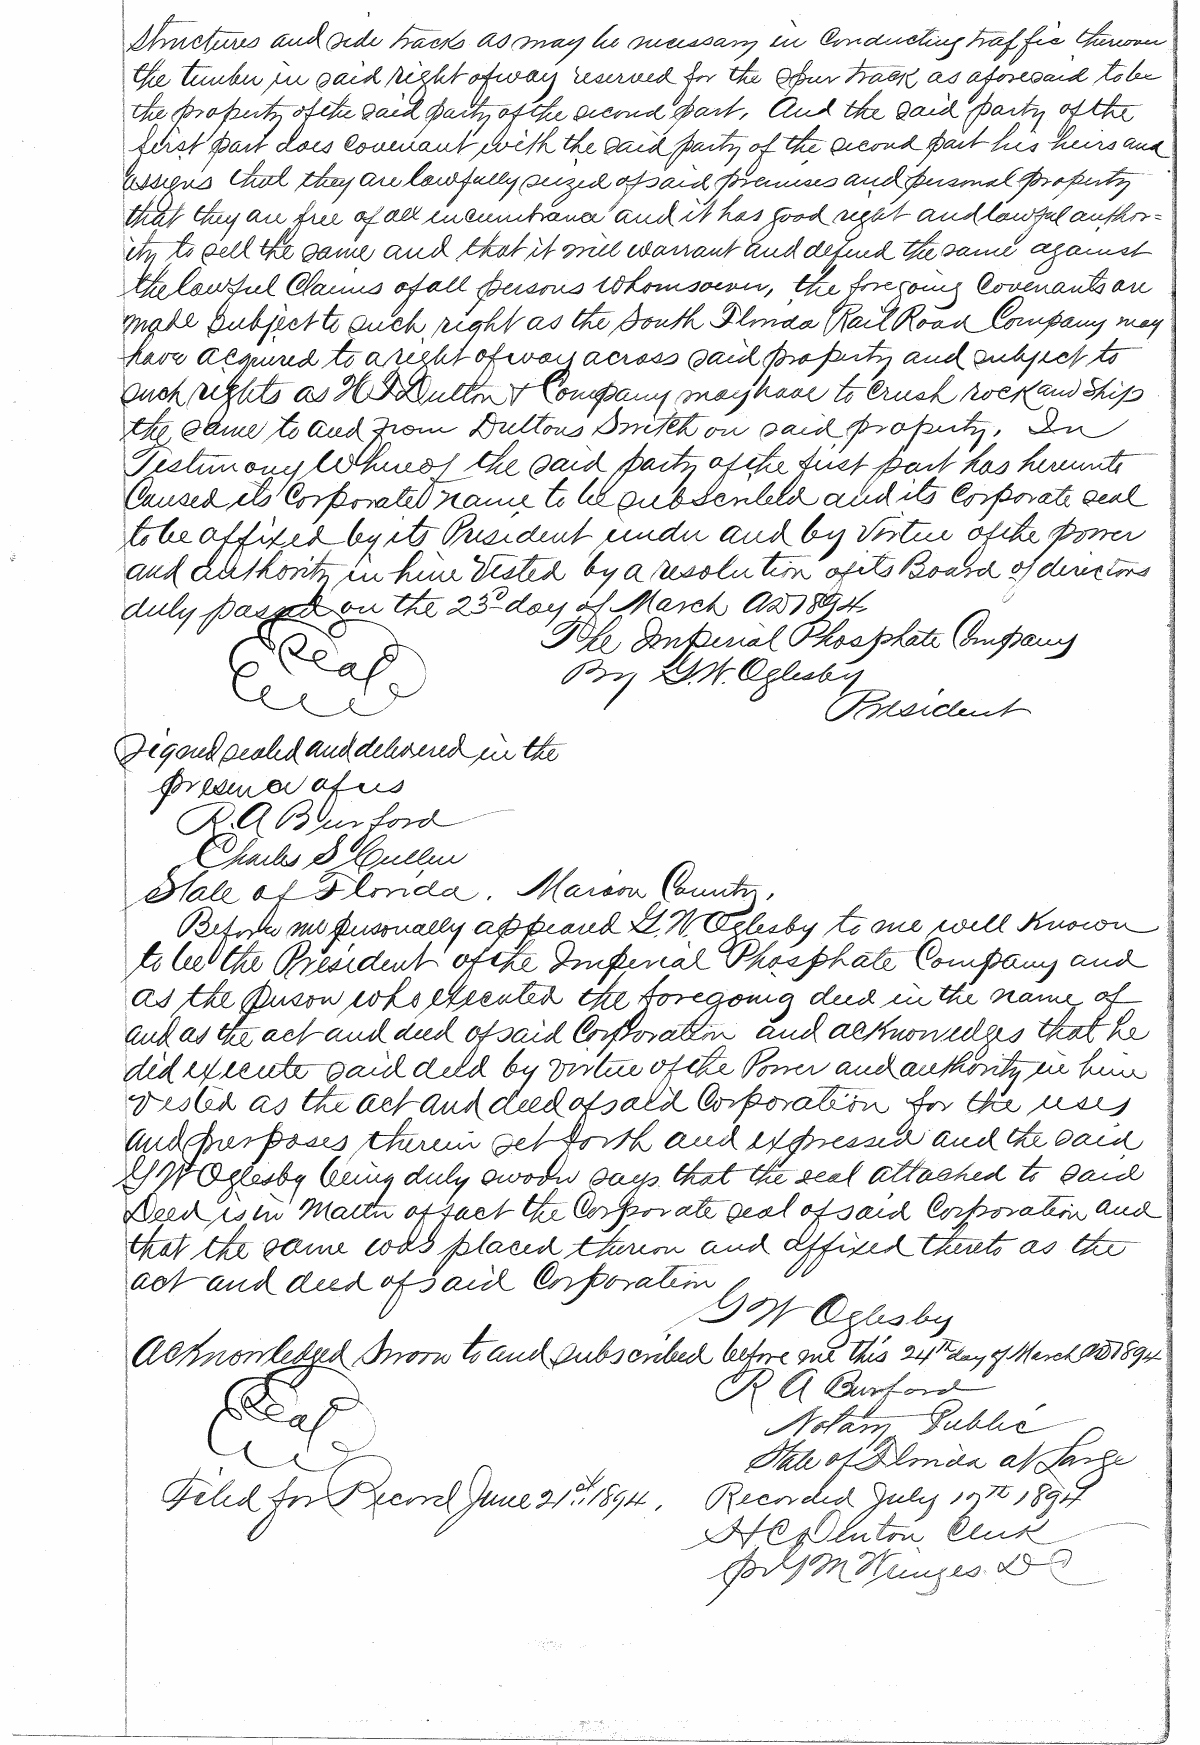 structures and side tracks as may be necessary in conducting traffic thereover
the timber in said right of way reserved for the spur track as aforesaid to be
the property of the said party of the second part. And the said party of the
first part does covenant with the said party of the second part his heirs and
assigns that they are lawfully seized of said premises and personal property
that they are free of all incumbrance and it has good right and lawful author=
ity to sell the same and that it will warrant and defend the same against
the lawful claims of all persons whomsoever, the foregoing covenants are
made subject to such right as the South Florida Rail Road Company may
have acquired to a right of way across said property and subject to
such rights as Dutton & Company may have to crush rock and ship
the same to and from Duttons Switch on said property. In
Testimony Whereof the said party of the first part has hereunto
caused its Corporated name to be subscribed and its corporate seal
to be affixed by its President under and by virtue of the power
and authority in him vested by a resolution of its Board of directors
duly passed on the 23d day of March AD 1894
Seal
The Imperial Phosphate Company
By G.W. Oglesby
President
Signed sealed and delivered in the
presence of us
R.A Burford
Charles S Cullen
State of Florida. Marion County.
Before me personally appeared G.W. Oglesby to me well known
to be the President of the Imperial Phosphate Company and
as the person who executed the foregoing deed in the name of
and as the act and deed of said Corporation and acknowledges that he
did execute said deed by virtue of the Power and authority in him
vested as the act and deed of said Corporation for the uses
and purposes therein set forth and expressed and the said
G W Oglesby being duly sworn says that the seal attached to said
Deed is in matter of fact the Corporate seal of said Corporation and
that the same was placed thereon and affixed thereto as the
act and deed of said Corporation
G W Oglesby
Acknowledged Sworn to and subscribed before me this 24th day of March AD 1894
Seal
R A Burford
Notary Public
State of Florida at Large
Filed for Record June 21st 1894. Recorded July 1894
Clerk
D C